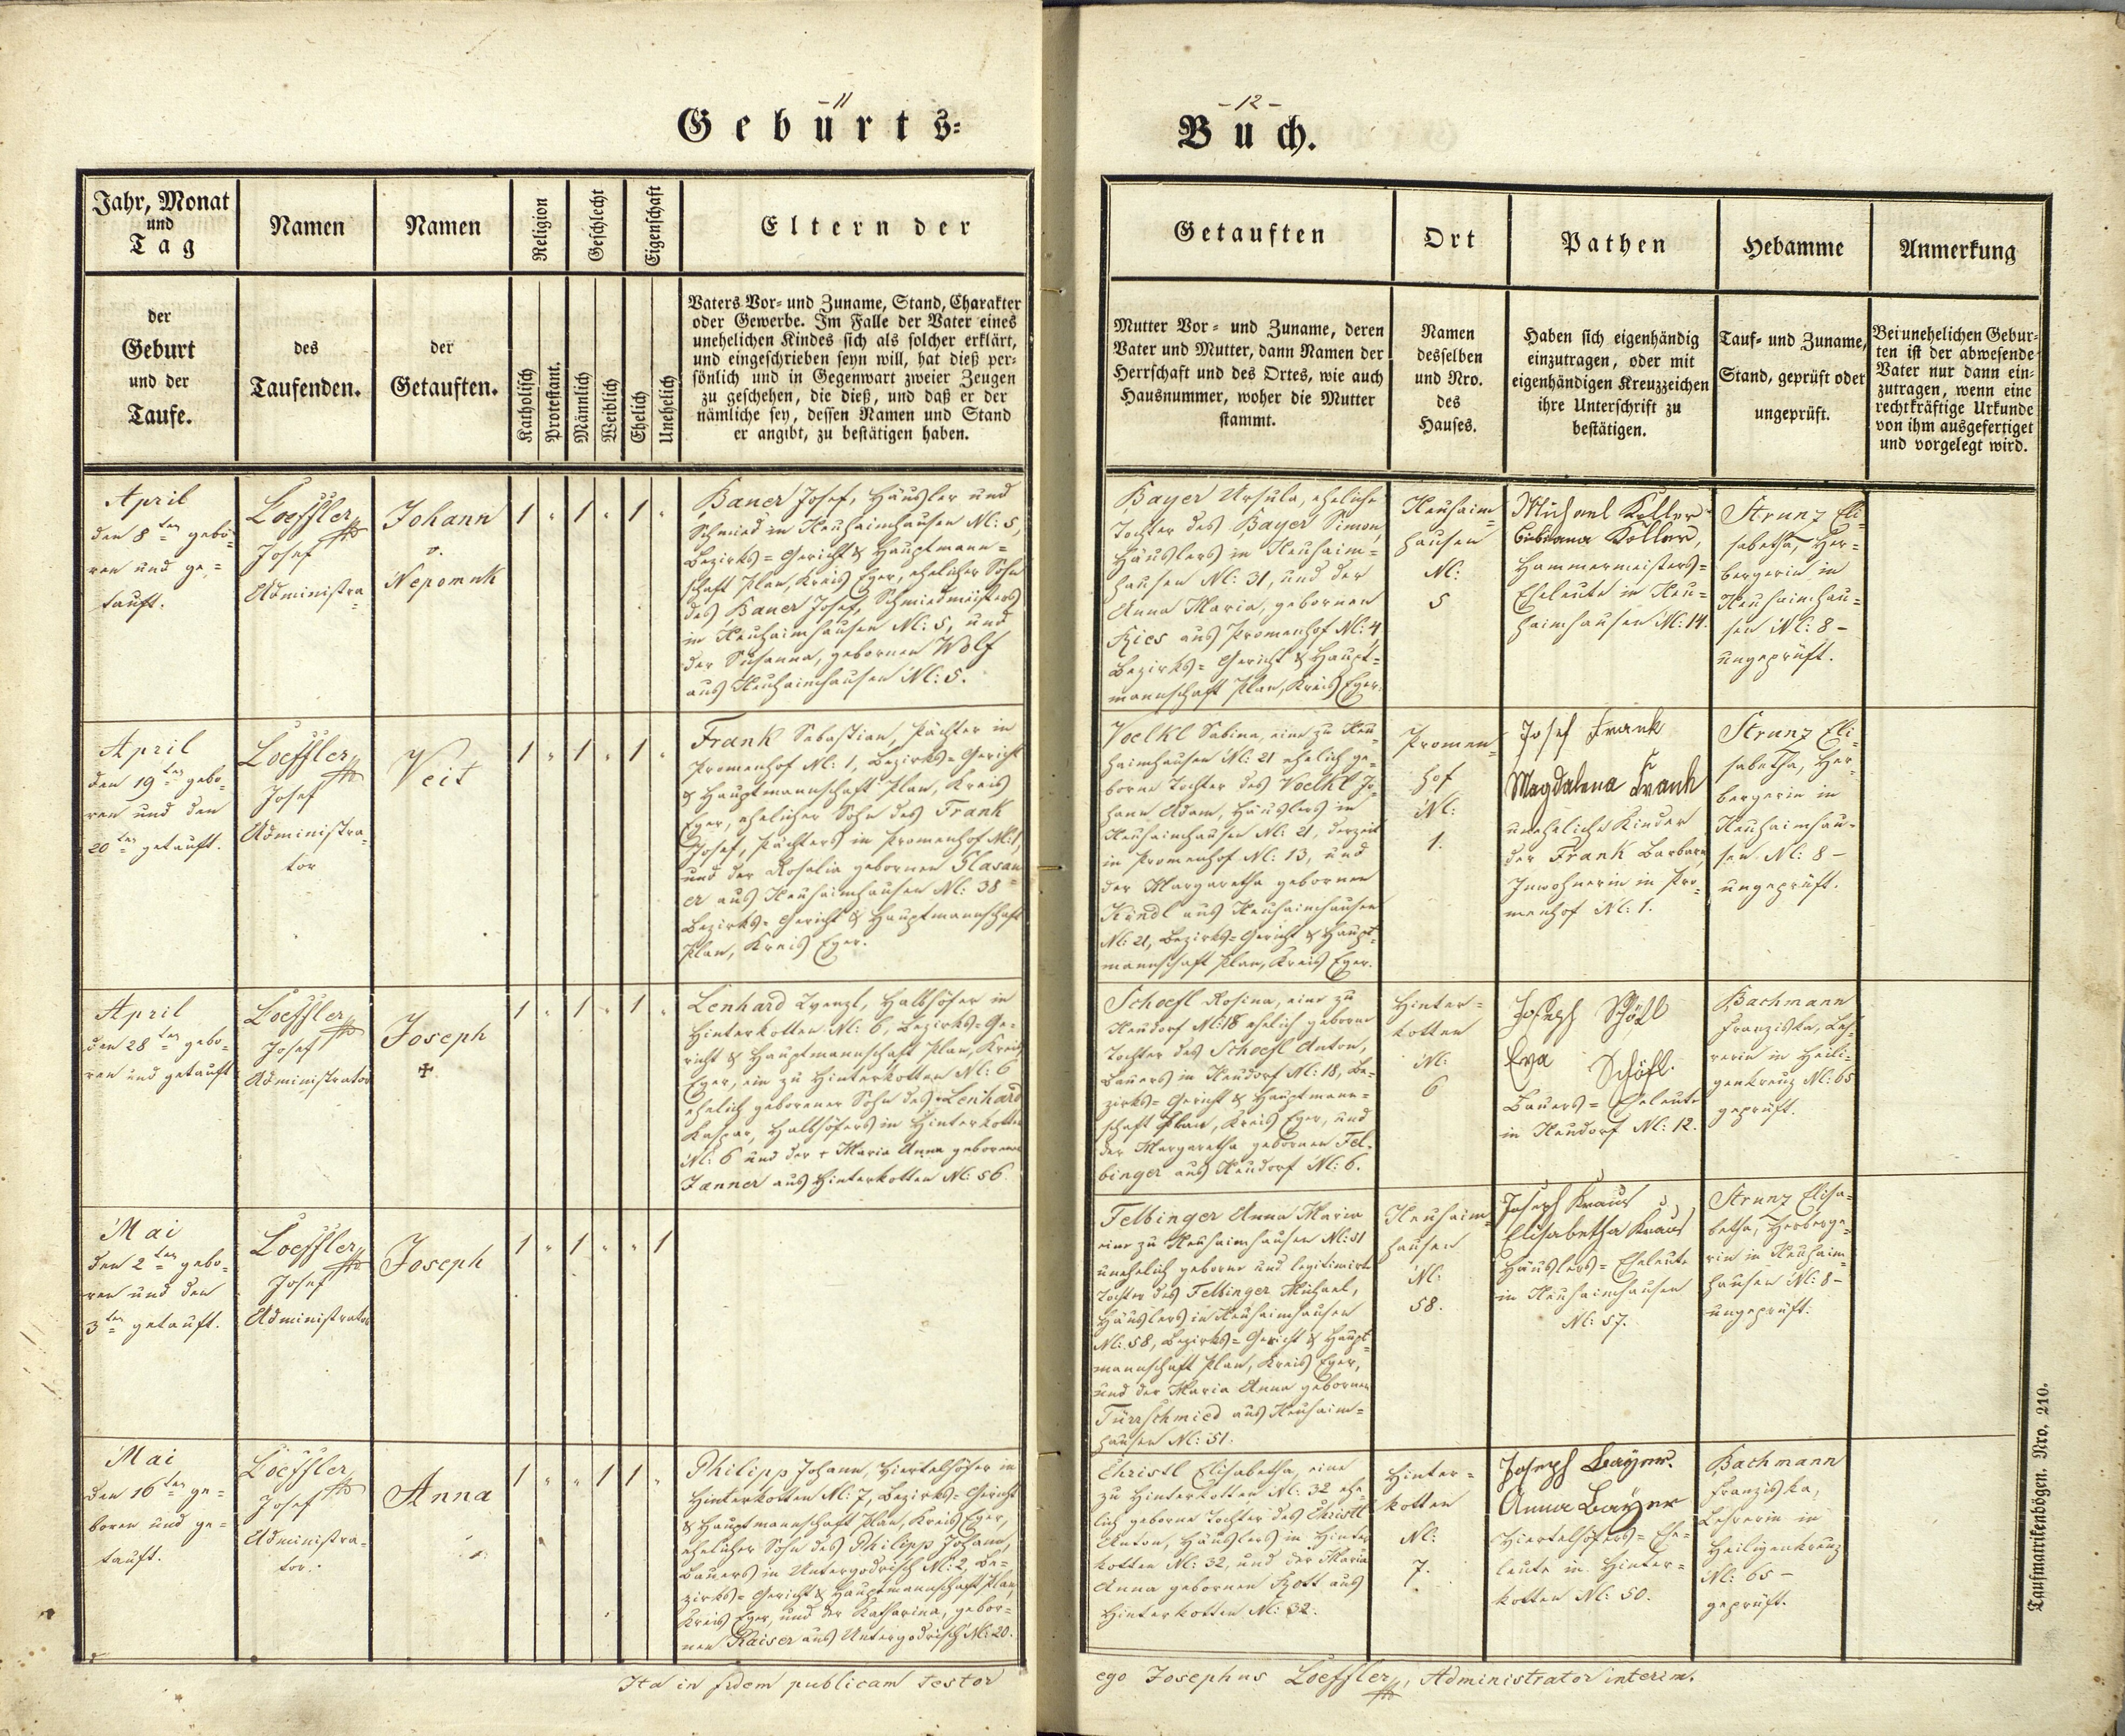 - 11
Geburts-
Jahr, Monat
und
Tag
Namen
Namen
Religion
Geschlecht
Eigenschaft
Eltern der
der
Geburt
und der
Taufe.
des
Taufenden.
der
Getauften.
Katholisch
Protestant.
Männlich
Weiblich
Ehelich
Unehelich
Vaters Vor- und Zuname, Stand, Charakter
oder Gewerbe. Im Falle der Vater eines
unehelichen Kindes sich als solcher erklärt,
und eingeschrieben seyn will, hat dieß per-
sönlich und in Gegenwart zweier Zeugen
zu geschehen, die dieß, und daß er der
nämliche sey, dessen Namen und Stand
er angibt, zu bestätigen haben.
April
den 8ten gebo-
ren und ge-
tauft.
Loeffler
Josef
Administra-
Johann
v.
Nepomuk
1 " 1 " 1 "
Bauer Josef, Häusler und
Schmied in Neuhaimhausen N: 5,
Bezirks-Gericht & Hauptmann-
schaft Plan, Kreis Eger, ehelicher Sohn
des Bauer Josef, Schmiedmeisters
in Neuhaimhausen N: 5, und
der Susanna, gebornen Wolf
aus Neuhaimhausen N: 5.
April
den 19ten gebo-
ren und den
20ten getauft.
Loeffler
Josef
Administra-
tor
Veit
1 " 1 " 1 "
Frank Sebastian, Pächter in
Promenhof N: 1, Bezirks-Gericht
& Hauptmannschaft Plan, Kreis
Eger, ehelicher Sohn des Frank
Josef, Pächters in Promenhof N: 1,
und der Rosalia gebornen Glasau-
er aus Neuhaimhausen N: 38
Bezirks-Gericht & Hauptmannschaft
Plan, Kreis Eger.
April
den 28ten gebo-
ren und getauft
Loeffler
Josef
Administrator
Joseph
✠
1 " 1 " 1 "
Lenhard Wenzl, Halbhöfer in
Hinterkotten N: 6, Bezirks-Ge-
richt & Hauptmannschaft Plan, Kreis
Eger, ein zu Hinterkotten N: 6
ehelich geborener Sohn des Lenhard
Kaspar, Halbhöfers in Hinterkotten
N: 6 und der + Maria Anna gebornen
Janner aus Hinterkotten N: 56
Mai
den 2ten gebo-
ren und den
3ten getauft.
Loeffler
Josef
Administrator
Joseph
1 " 1 " " 1
Mai
den 16ten ge-
boren und ge-
tauft.
Loeffler
Josef
Administra-
tor.
Anna
1 " " 1 1 "
Philipp Johann, Viertelhöfer in
Hinterkotten N: 7, Bezirks-Gericht
& Hauptmannschaft Plan, Kreis Eger,
ehelicher Sohn des Philipp Johann,
Bauers in Untergodrisch N: 2, Be-
zirks-Gericht & Hauptmannschaft Plan,
Kreis Eger, und der Katharina, gebor-
nen Kaiser aus Untergodrisch N: 20.
Ita in fidem publicam testor
- 12 -
Buch.
Getauften
Ort
Pathen
Hebamme
Anmerkung
Mutter Vor- und Zuname, deren
Vater und Mutter, dann Namen der
Herrschaft und des Ortes, wie auch
Hausnummer, woher die Mutter
stammt.
Namen
desselben
und Nro.
des
Hauses.
Haben sich eigenhändig
einzutragen, oder mit
eigenhändigen Kreuzzeichen
ihre Unterschrift zu
bestätigen.
Tauf- und Zuname,
Stand, geprüft oder
ungeprüft.
Bei unehelichen Gebur-
ten ist der abwesende
Vater nur dann ein-
zutragen, wenn eine
rechtkräftige Urkunde
von ihm ausgefertiget
und vorgelegt wird.
Bayer Ursula, eheliche
Tochter des Bayer Simon,
Häuslers in Neuhaim-
hausen N: 31, und der
Anna Maria, gebornen
Kies aus Promenhof N: 4,
Bezirks-Gericht & Haupt-
mannschaft Plan, Kreis Eger.
Neuhaim-
hausen
N:
5
Michael Koller
Bibiana Koller,
Hammermeisters-
Eheleute in Neu-
haimhausen N: 14.
Strunz Eli-
sabetha, Her-
bergerin in
Neuhaimhau-
sen N: 8 -
ungeprüft.
Voelkl Sabina, eine zu Neu-
haimhausen N: 21 ehelich ge-
borne Tochter des Voelkl Jo-
hann Adam, Häuslers in
Neuhaimhausen N: 21, derzeit
in Promenhof N: 13, und
der Margaretha gebornen
Kündl aus Neuhaimhausen
N: 21, Bezirks-Gericht & Haupt-
mannschaft Plan, Kreis Eger.
Promen-
hof
N:
1.
Josef Frank
Magdalena Frank
uneheliche Kinder
der Frank Barbara,
Inwohnerin in Pro-
menhof N: 1.
Strunz Eli-
sabetha, Her-
bergerin in
Neuhaimhau-
sen N: 8 -
ungeprüft.
Schoefl Rosina, eine zu
Neudorf N: 18 ehelich geborne
Tochter des Schoefl Anton,
Bauers in Neudorf N: 18, Be-
zirks-Gericht & Hauptmann-
schaft Plan, Kreis Eger, und
der Margaretha gebornen Fel-
binger aus Neudorf N: 6.
Hinter-
kotten
N:
6
Joseph Schöfl
Eva Schöfl.
Bauers-Eheleute
in Neudorf N: 12.
Bachmann
Franziska, Leh-
rerin in Heili-
genkreuz N: 65
geprüft.
Felbinger Anna Maria
eine zu Neuhaimhausen N: 51
unehelich geborne und legitimirte
Tochter des Felbinger Michael,
Häuslers in Neuhaimhausen
N: 58, Bezirks-Gericht & Haupt-
mannschaft Plan, Kreis Eger,
und der Maria Anna gebornen
Türrschmied aus Neuhaim-
hausen N: 51.
Neuhaim-
hausen
N:
58.
Joseph Kraus
Elisabetha Kraus
Häuslers-Eheleute
in Neuhaimhausen
N: 57.
Strunz Elisa-
betha, Herberge-
rin in Neuhaim-
hausen N: 8 -
ungeprüft.
Christl Elisabetha, eine
zu Hinterkotten N: 32 ehe-
lich geborne Tochter des Christl
Anton, Häuslers in Hinter-
kotten N: 32, und der Maria
Anna gebornen Kott aus
Hinterkotten N: 32.
Hinter-
kotten
N:
7.
Joseph Bayer.
Anna Bayer
Viertelhöfers-Ehe-
leute in Hinter-
kotten N: 50.
Bachmann
Franziska,
Lehrerin in
Heiligenkreuz
N: 65 -
geprüft.
ego Josephus Loeffler, Administrator interim.
Taufmatrikenbögen. Nro. 210.